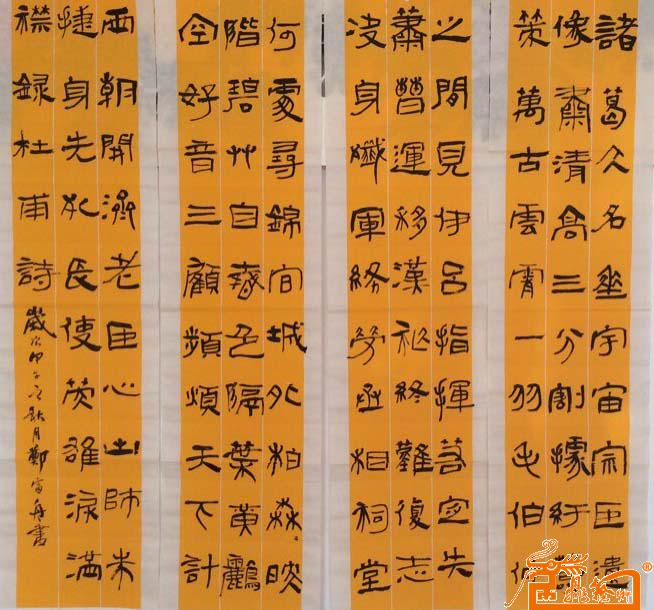 諸葛大名垂宇宙宗臣遺
像肅清高三分割據紆籌
策萬古雲霄一羽毛伯仲
之間見伊呂指揮若定失
蕭曹運移漢祚終難復志
決身殲軍務勞丞相祠堂
何處尋錦官城外柏森々映
階碧艸自春色隔葉黃鸝
空好音三顧頻煩天下計
兩朝開濟老臣心出師未
捷身先死長使英雄淚滿
襟録杜甫詩 歲次甲午月鄭書